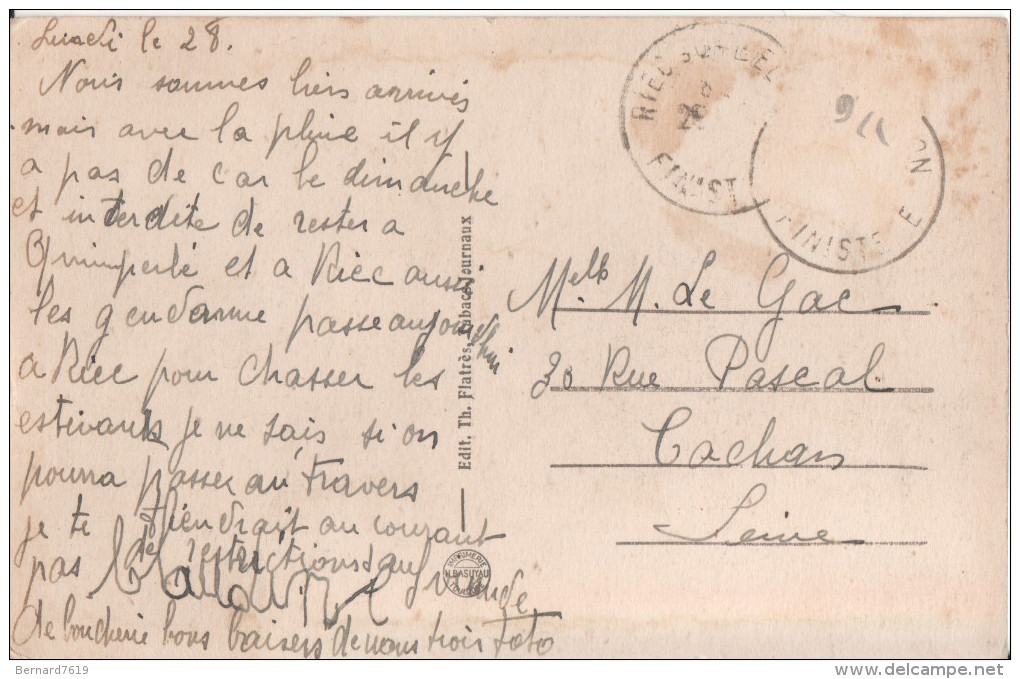 Lundi le 28.
Nous sommes hier arrivés
mais avec la pluie il y
a pas de car le dimanche
et interdite de rester a
Quimperlé et a Riec aussi
les gendarme passe aujourdhui
a Riec pour chasser les
estivants je ne sais si on
pourra passer au travers
je te tiendrait au courant
pas de restrictions sauf viande
de boucherie bons baisers de nous trois Toto
Edit. Th. Flatrès, Tabacs-Journaux
IMPRIMERIE
H. BASUYAU
TOULOUSE
RIEC SUR BEL
28
FINIST
FINISTE E
N
9
Melle M. Le Gac
30 Rue Pascal
Cachan
Seine
Bernard7619
delcampe.net